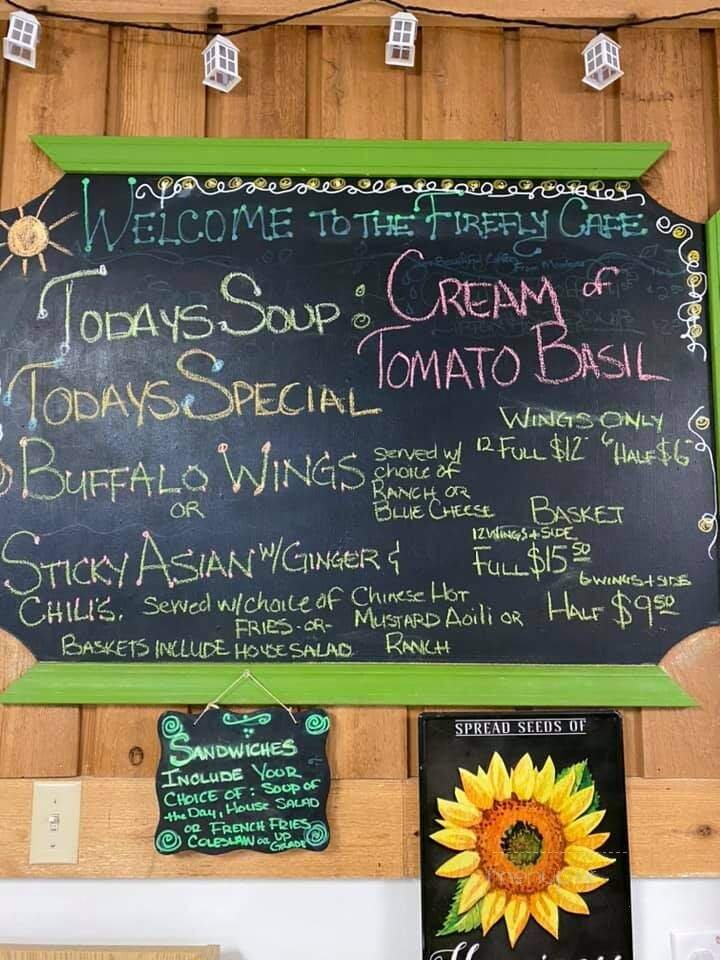 WELCOME TO THE FIREFLY CAFE
TODAYS SOUP : CREAM of
TOMATO BASIL
TODAYS SPECIAL
WINGS ONLY
12 FULL $12 6 HALF $6
BUFFALO WINGS
Served w/
choice of
RANCH OR
BLUE CHEESE
OR
BASKET
12 WINGS + SIDE
FULL $15 50
6 WINGS + SIDE
HALF $9 50
STICKY ASIAN W/ GINGER &
CHILI'S. Served w/ choice of Chinese Hot
FRIES -OR- MUSTARD Aoili OR
BASKETS INCLUDE HOUSE SALAD RANCH
SANDWICHES
INCLUDE YOUR
CHOICE OF : SOUP OF
the DAY, HOUSE SALAD
OR FRENCH FRIES
COLESLAW OR UP
GRADE
SPREAD SEEDS OF